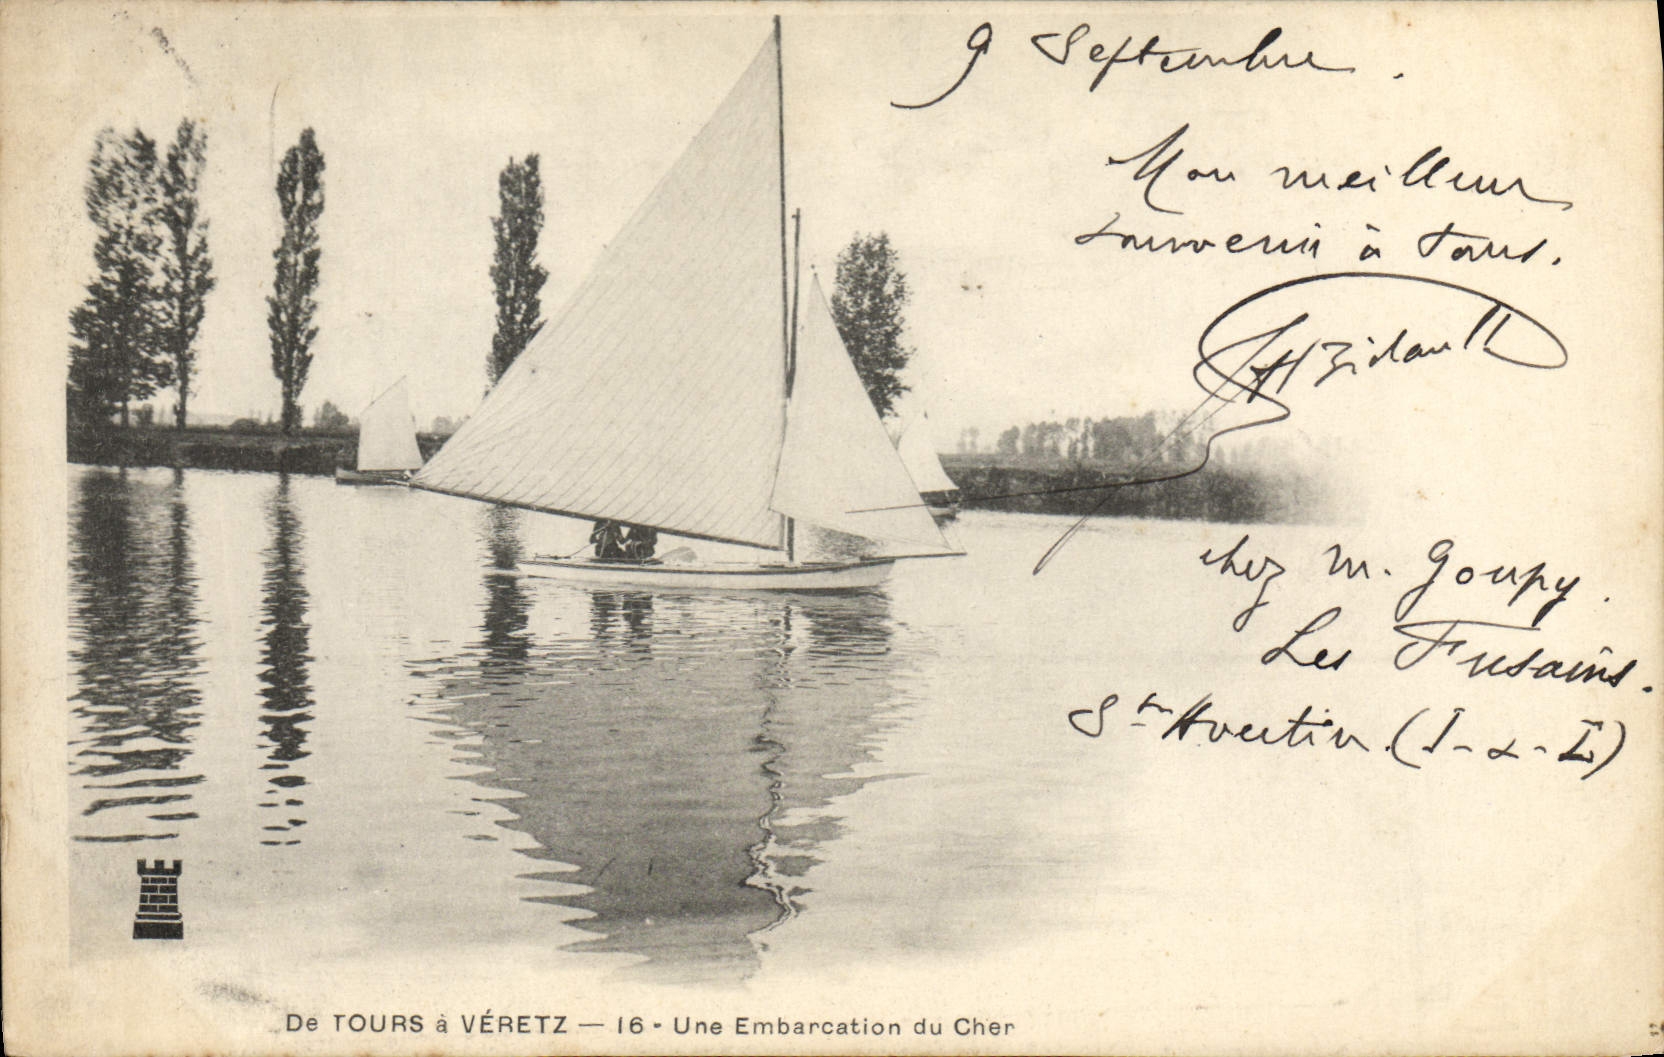 9 Septembre.
Mon meilleur
souvenir à tous.
chez M. Goupy.
Les Fusains.
St Avertin (I-&-L)
De TOURS à VÉRETZ — 16 - Une Embarcation du Cher